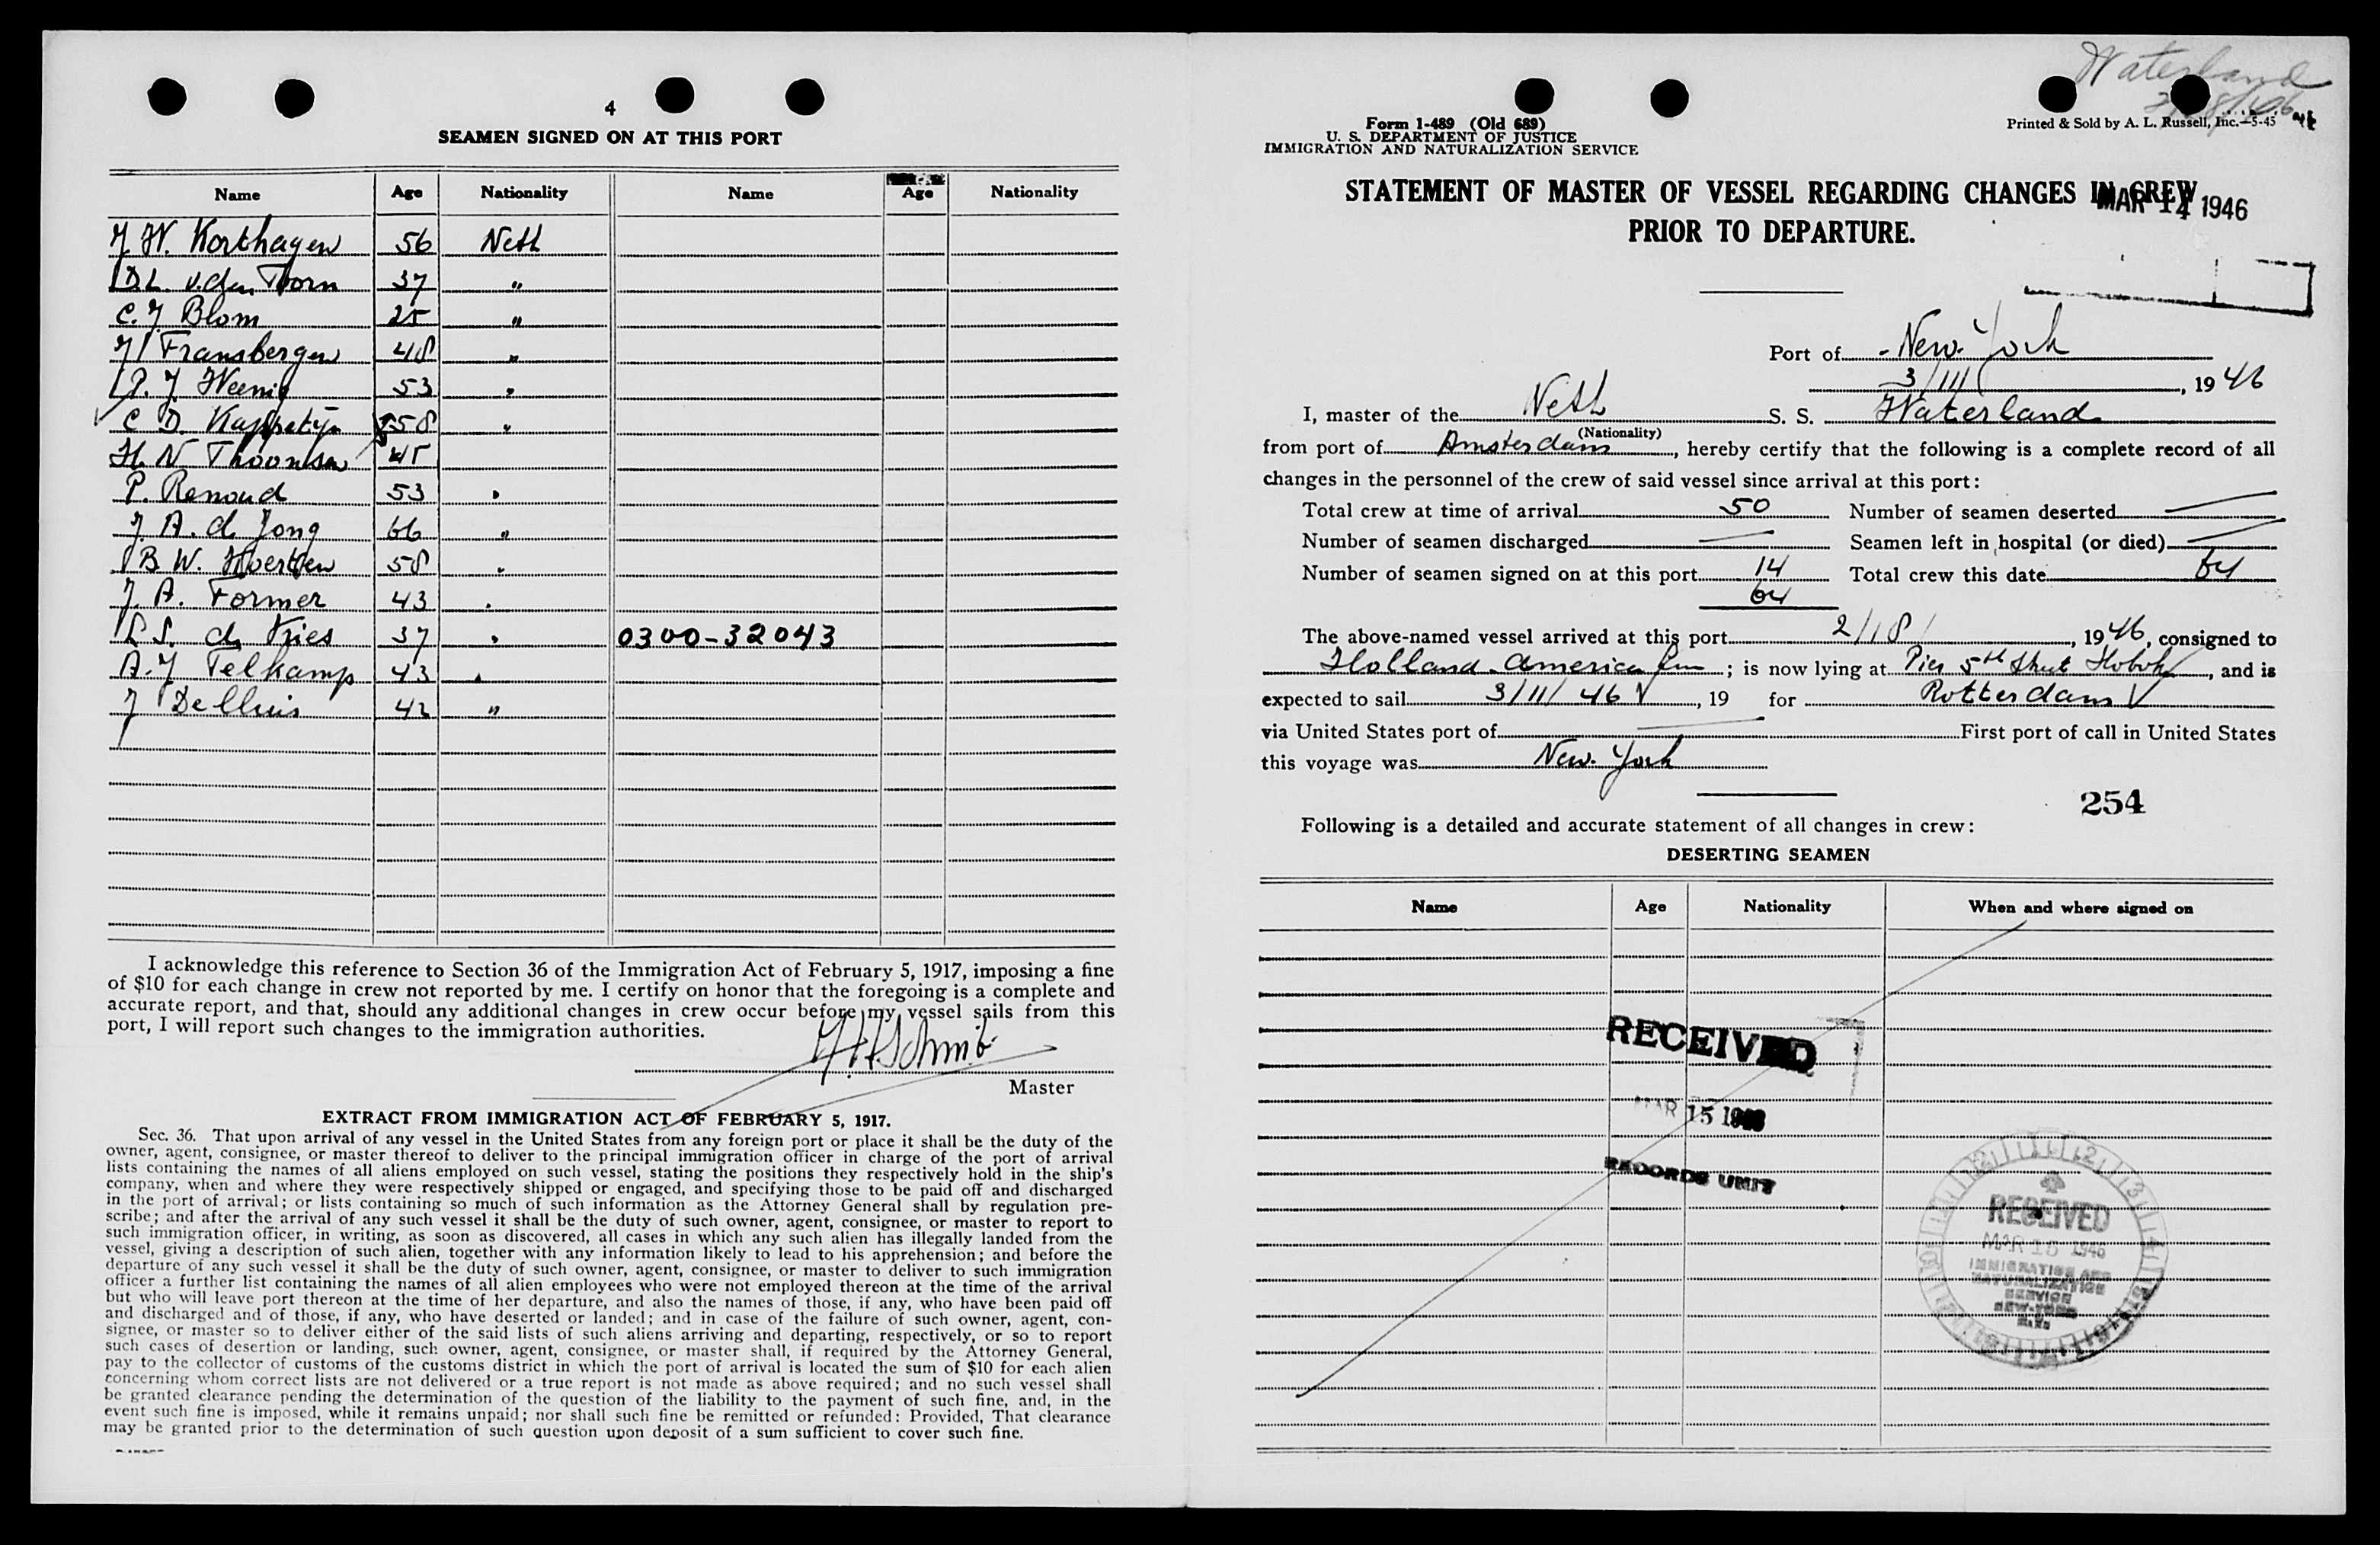 4
SEAMEN SIGNED ON AT THIS PORT
Name Age Nationality Name Age Nationality
J W. Korthagen 56 Neth
D L. v. den Toorn 37 "
C. J Blom 25 "
J Fransbergen 48 "
P. J. Weenig 53 "
C D. Kappetijn 58 "
H. N Thoomsen 45
P. Renoud 53 "
J. A. de Jong 66 "
B W. 58 "
J. A. Former 43 "
L S. de Vries 37 " 0300-32043
A. J Telkamp 43 "
J Dellius 42 "
I acknowledge this reference to Section 36 of the Immigration Act of February 5, 1917, imposing a fine
of $10 for each change in crew not reported by me. I certify on honor that the foregoing is a complete and
accurate report, and that, should any additional changes in crew occur before my vessel sails from this
port, I will report such changes to the immigration authorities.
Master
EXTRACT FROM IMMIGRATION ACT OF FEBRUARY 5, 1917.
Sec. 36. That upon arrival of any vessel in the United States from any foreign port or place it shall be the duty of the
owner, agent, consignee, or master thereof to deliver to the principal immigration officer in charge of the port of arrival
lists containing the names of all aliens employed on such vessel, stating the positions they respectively hold in the ship's
company, when and where they were respectively shipped or engaged, and specifying those to be paid off and discharged
in the port of arrival; or lists containing so much of such information as the Attorney General shall by regulation pre-
scribe; and after the arrival of any such vessel it shall be the duty of such owner, agent, consignee, or master to report to
such immigration officer, in writing, as soon as discovered, all cases in which any such alien has illegally landed from the
vessel, giving a description of such alien, together with any information likely to lead to his apprehension; and before the
departure of any such vessel it shall be the duty of such owner, agent, consignee, or master to deliver to such immigration
officer a further list containing the names of all alien employees who were not employed thereon at the time of the arrival
but who will leave port thereon at the time of her departure, and also the names of those, if any, who have been paid off
and discharged and of those, if any, who have deserted or landed; and in case of the failure of such owner, agent, con-
signee, or master so to deliver either of the said lists of such aliens arriving and departing, respectively, or so to report
such cases of desertion or landing, such owner, agent, consignee, or master shall, if required by the Attorney General,
pay to the collector of customs of the customs district in which the port of arrival is located the sum of $10 for each alien
concerning whom correct lists are not delivered or a true report is not made as above required; and no such vessel shall
be granted clearance pending the determination of the question of the liability to the payment of such fine, and, in the
event such fine is imposed, while it remains unpaid; nor shall such fine be remitted or refunded: Provided, That clearance
may be granted prior to the determination of such question upon deposit of a sum sufficient to cover such fine.
Waterland
Form 1-489 (Old 689)
U. S. DEPARTMENT OF JUSTICE
IMMIGRATION AND NATURALIZATION SERVICE
Printed & Sold by A. L. Russell, Inc.—5-45
STATEMENT OF MASTER OF VESSEL REGARDING CHANGES IN CREW
PRIOR TO DEPARTURE.
MAR 14 1946
Port of New York
3/11/, 19 46
I, master of the Neth S. S. Waterland
(Nationality)
from port of Amsterdam, hereby certify that the following is a complete record of all
changes in the personnel of the crew of said vessel since arrival at this port:
Total crew at time of arrival 50 Number of seamen deserted —
Number of seamen discharged — Seamen left in hospital (or died) —
Number of seamen signed on at this port 14 Total crew this date 64
64
The above-named vessel arrived at this port 2/18/, 1946, consigned to
Holland America Line; is now lying at Pier 5th Street Hobok, and is
expected to sail 3/11/ 46, 19 for Rotterdam
via United States port of — First port of call in United States
this voyage was New York
254
Following is a detailed and accurate statement of all changes in crew:
DESERTING SEAMEN
Name Age Nationality When and where signed on
RECEIVED
MAR 15 1946
RECORDS UNIT
RECEIVED
MAR 15 1946
IMMIGRATION AND
NATURALIZATION
SERVICE
NEW YORK